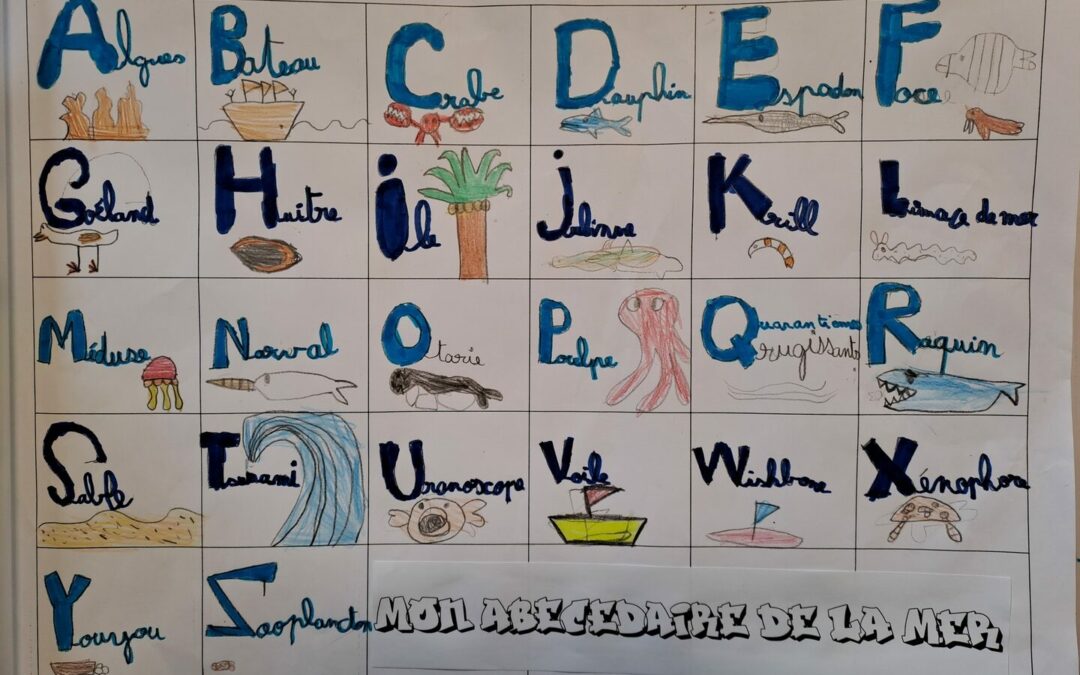 Algues
Bateau
Crabe
Dauphin
Espadon
Foce
Goéland
Huître
île
Krill
Limace de mer
Méduse
Narval
Otarie
Poulpe
Quarantièmes
rugissants
Requin
Sable
Tsunami
Uranoscope
Voile
Wishbone
Xénophora
Youyou
Zooplancton
MON ABECEDAiRE DE LA MER